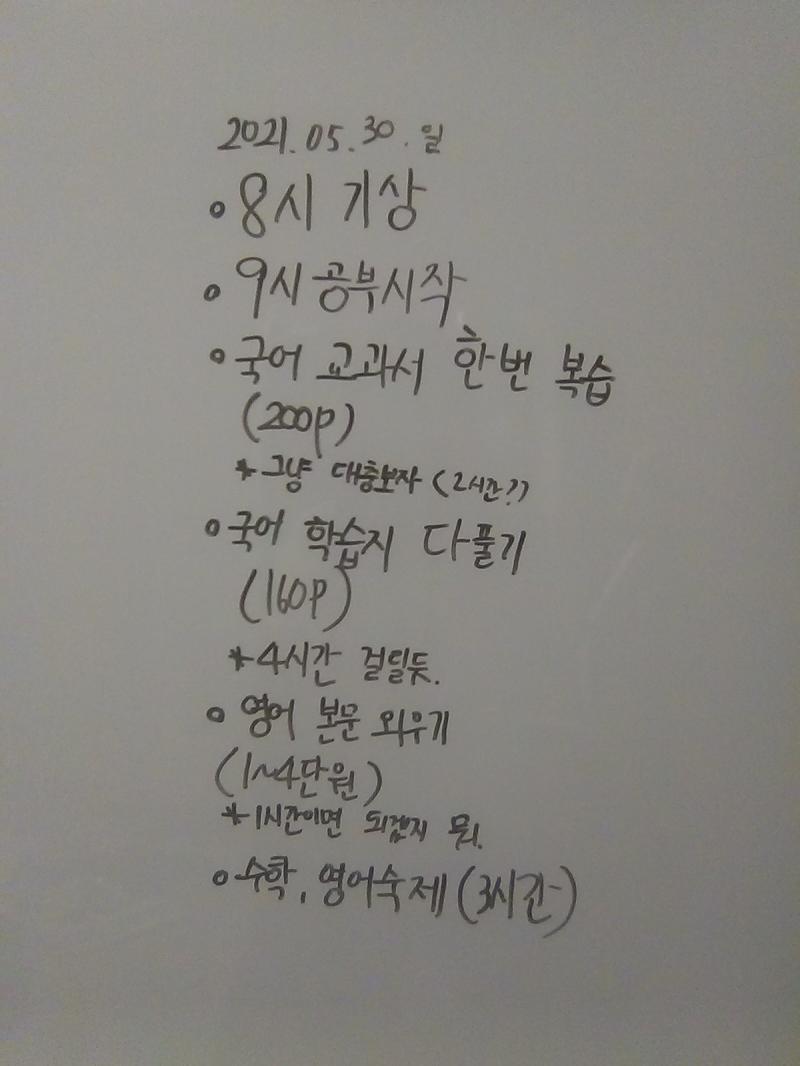 2021.05.30.일
◦8시 기상
◦9시 공부시작
◦국어 교과서 한번 복습
(200p)
*그냥 대충보자 (2시간??)
◦국어 학습지 다풀기
(160p)
*4시간 걸릴듯.
◦영어 본문 외우기
(1~4단원)
*1시간이면 되겠지 뭐.
◦수학, 영어숙제 (3시간)